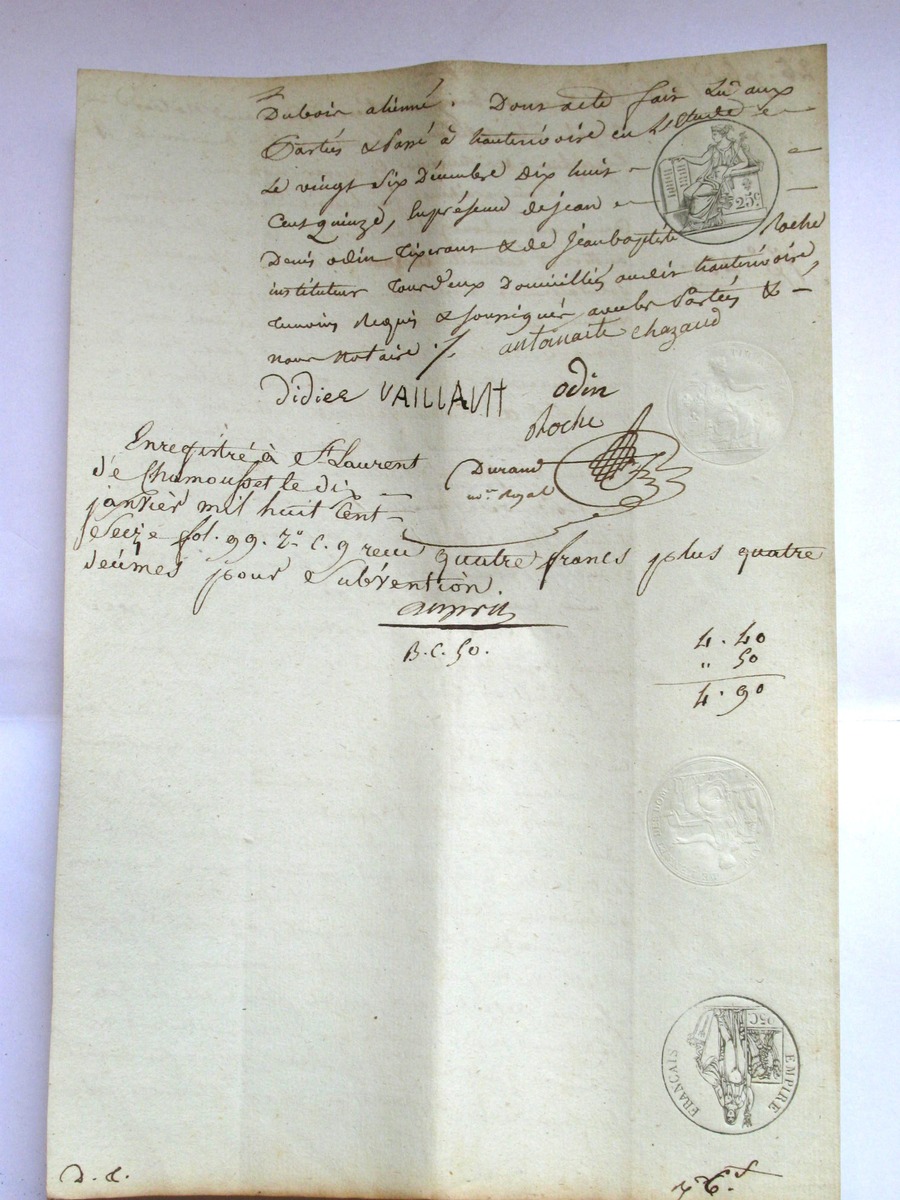 Dubois aliénné. Dont acte fait Lû aux
Parties & Passé à hauterivoire en L'Etude
Le vingt Six Décembre Dix huit
Cent quinze, En présence de jean
Denis odin Tixerant & de Jean baptiste Roche
instituteur Tous deux Domiciliés audit hauterivoire,
temoins Requis & soussignés avec les Parties &
nous Notaire ./.
antoinaite chazaud
didier VAILLANT
odin
Roche
Durand
no.re Royal
Enregistré à St. Laurent
de Chamousset le dix
janvier mil huit Cent
Seize fol. 99. Vo. C. 9 recu quatre francs plus quatre
deцimes pour Subvention.
B. C. 50.
4. 40
" 50
4. 90
25c.
EMPIRE
FRANÇAIS
D. C.